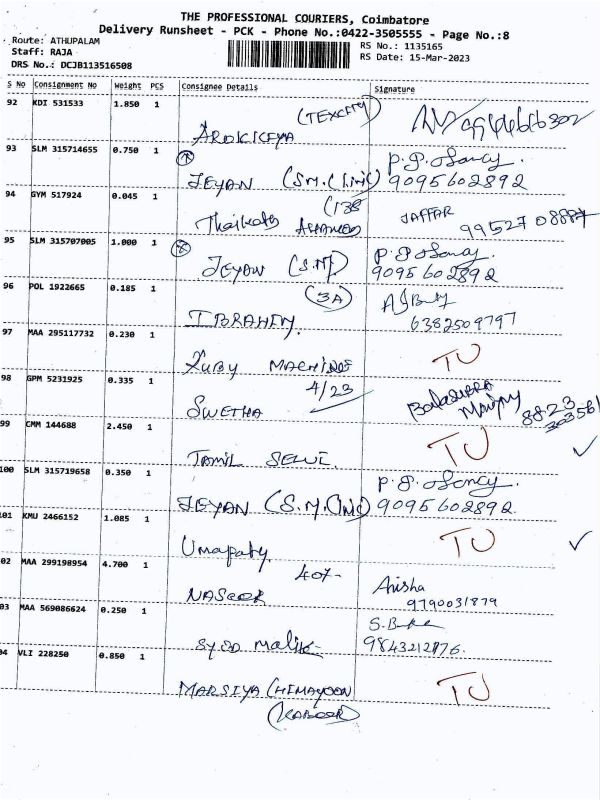 THE PROFESSIONAL COURIERS, Coimbatore
Delivery Runsheet - PCK - Phone No.:0422-3505555 - Page No.:8
Route: ATHUPALAM
Staff: RAJA
DRS No.: DCJB113516508
RS No.: 1135165
RS Date: 15-Mar-2023
S No Consignment No Weight PCS Consignee Details Signature
92 KDI 531533 1.850 1
(TEXCITY)
93 SLM 315714655 0.750 1
JEYAN (S.M. Clinic) P.P. 9095602892
94 GYM 517924 0.045 1
(138
JAFFAR
95 SLM 315707005 1.000 1
JEYAN (S.M) P.P. 9095602892
96 POL 1922665 0.185 1
(3A)
IBRAHIM. 6382509797
97 MAA 295117732 0.230 1
RUBY MACHINE TU
98 GPM 5231925 0.335 1
4/23
SWETHA
99 CMM 144688 2.450 1
TAMIL SELVI. TU
100 SLM 315719658 0.350 1
JEYAN (S.M. Clinic) P.P. 9095602892.
01 KMU 2466152 1.085 1
Umapathy. TU
02 MAA 299198954 4.700 1
407-
NASEER Anisha
9790031879
03 MAA 569086624 0.250 1
Syed Malik 9843212876.
04 VLI 228250 0.850 1
MARSIYA (HIMAYOON TU
(KABEER)